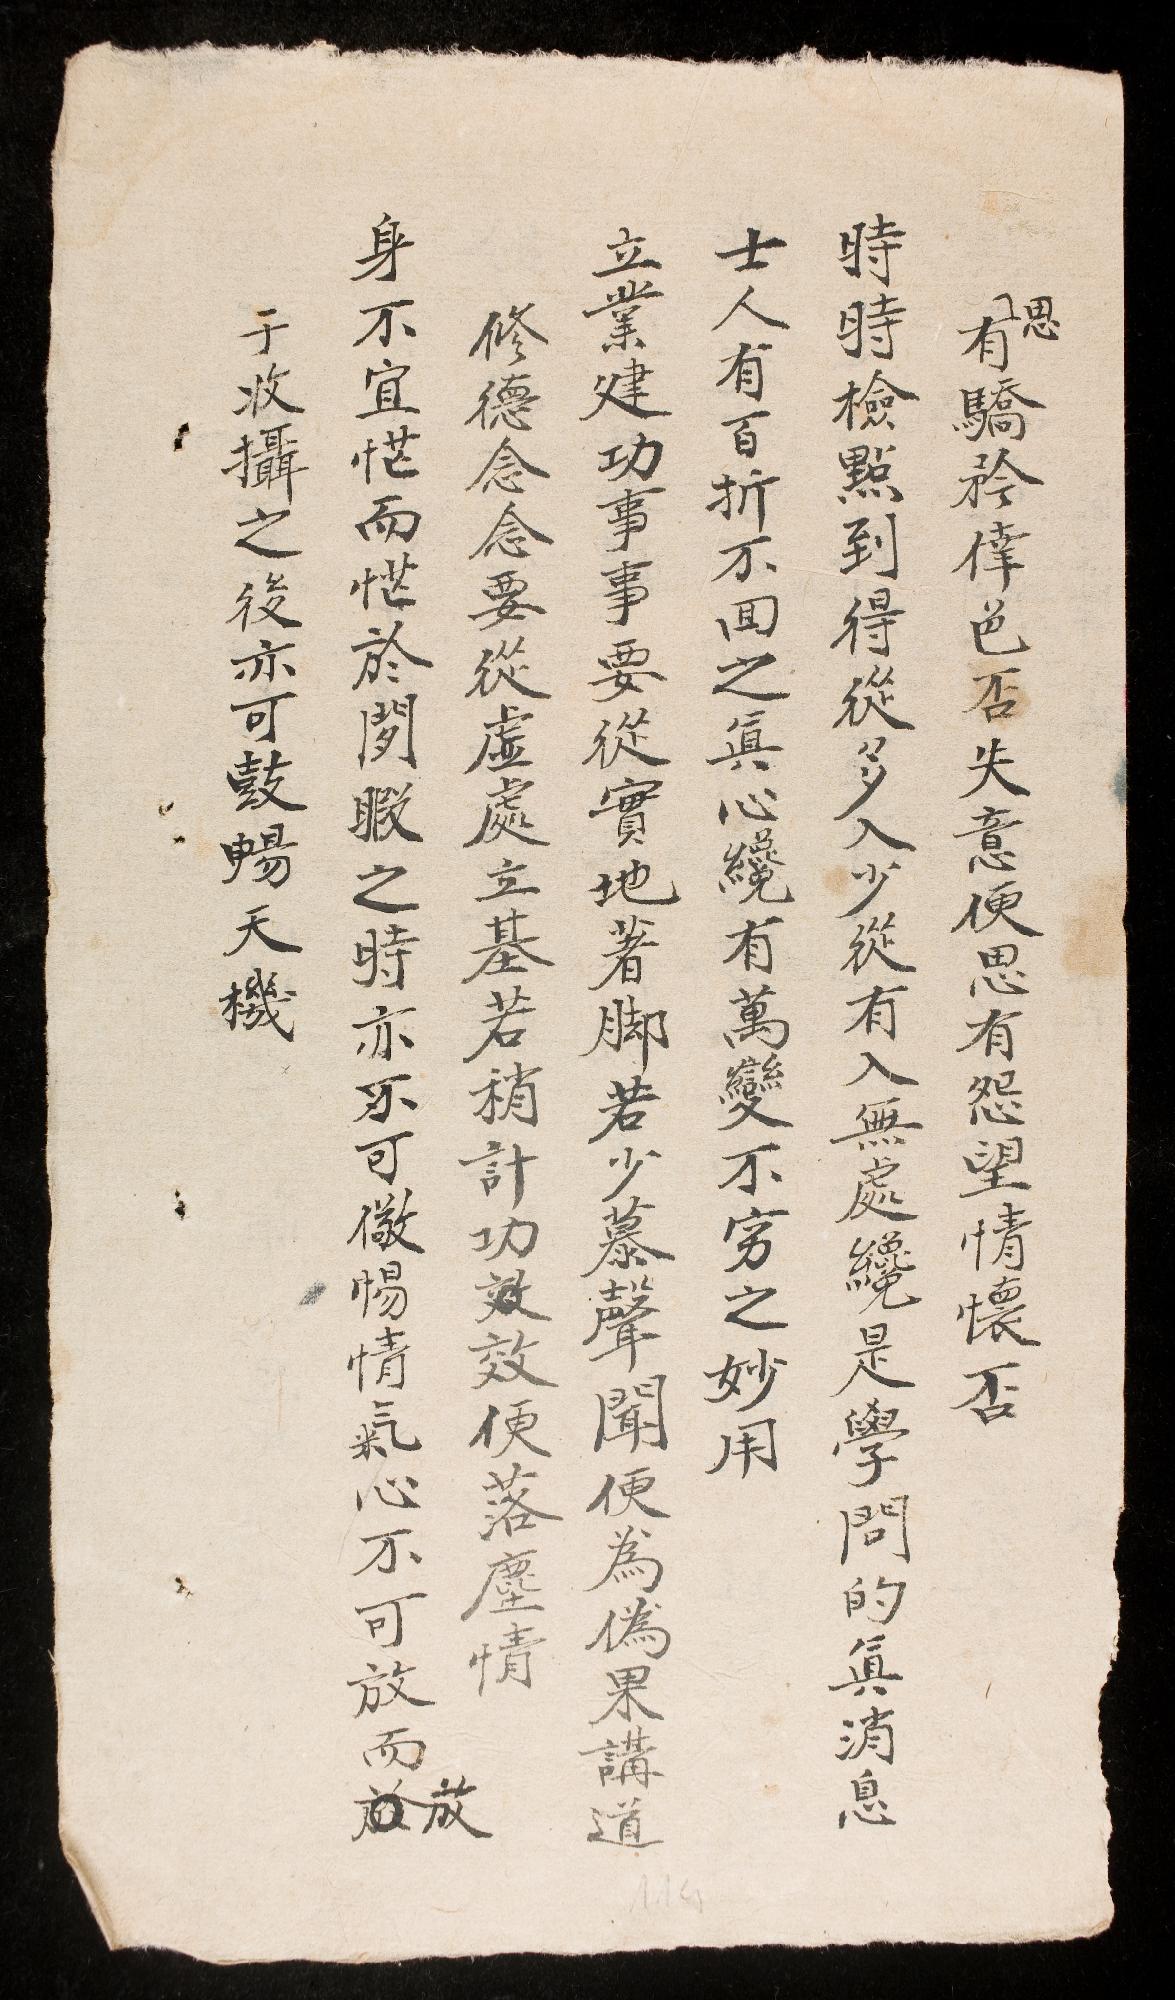 思有驕矜倖色否失意便思有怨望情懷否
時時檢點到得從多入少從有入無處纔是學問的真消息
士人有百折不回之真心纔有萬變不窮之妙用
立業建功事事要從實地著脚若少慕聲聞便為偽果講道
修德念念要從虛處立基若稍計功效效便落塵情
身不宜恾而恾於閒暇之時亦不可儆惕情氣心不可放而放
于收攝之後亦可鼓暢天機